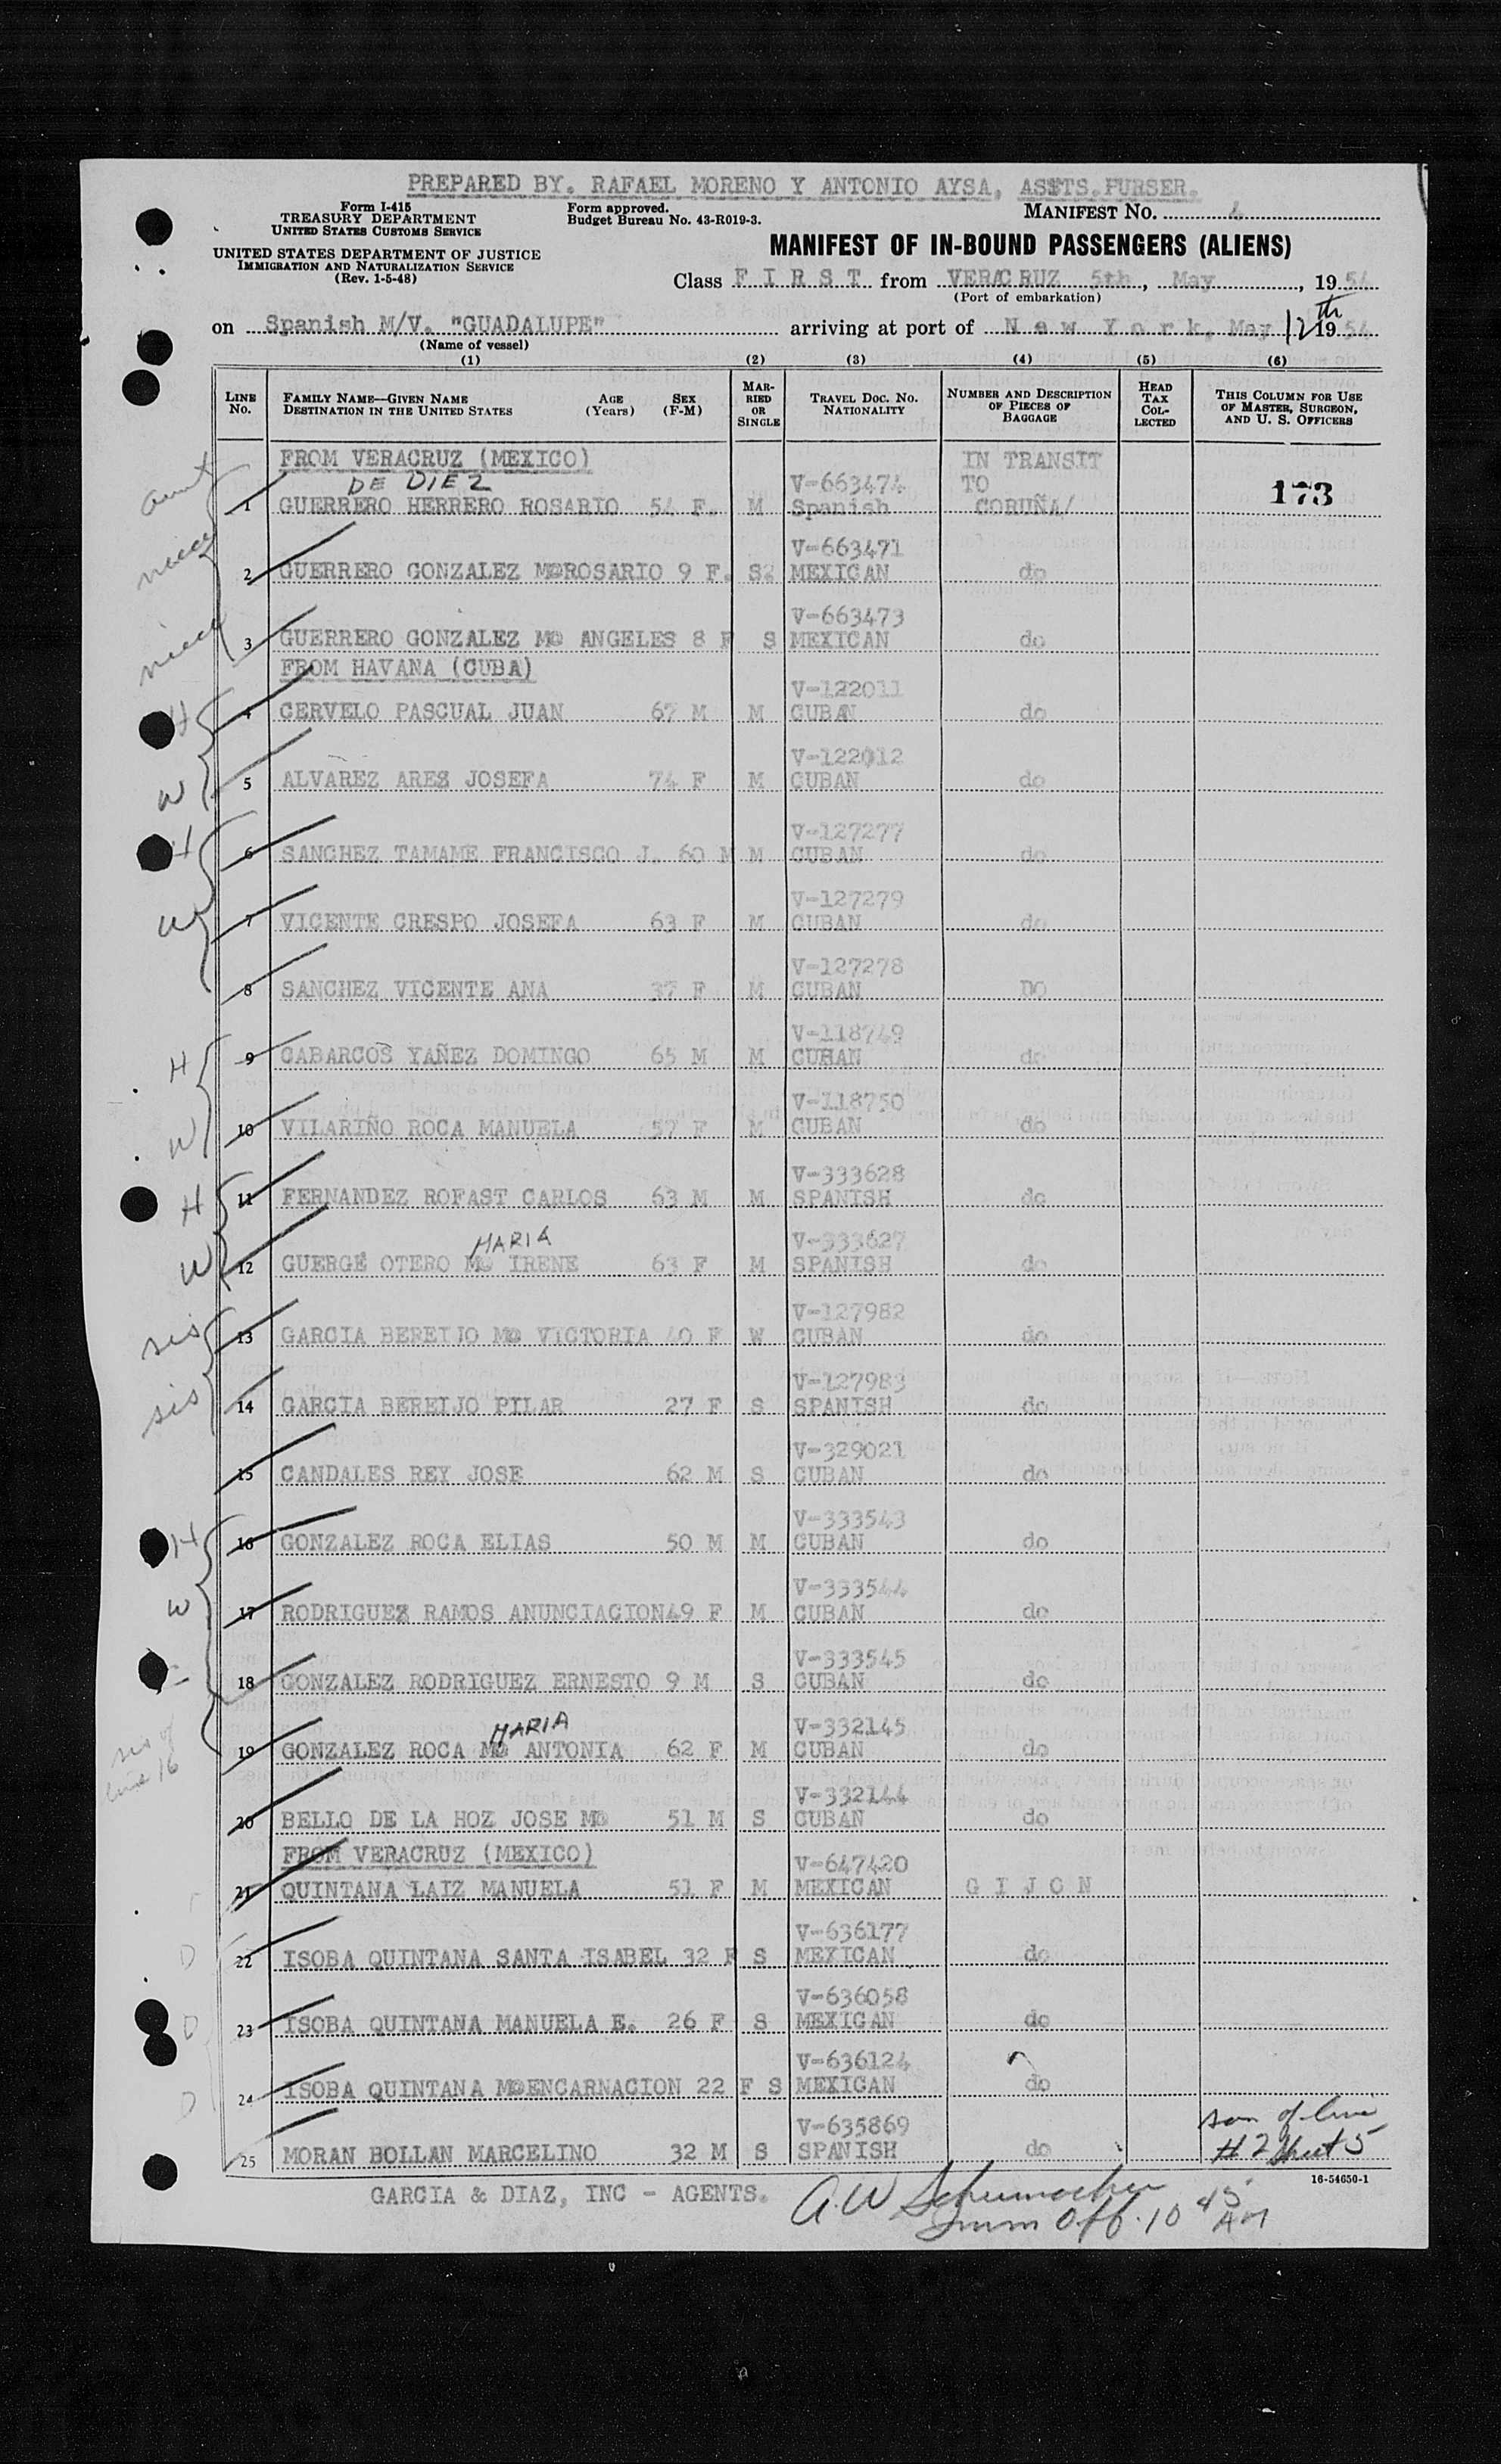 PREPARED BY. RAFAEL MORENO Y ANTONIO AYSA, ASSTS.PURSER.
Form I-415
TREASURY DEPARTMENT
UNITED STATES CUSTOMS SERVICE
UNITED STATES DEPARTMENT OF JUSTICE
IMMIGRATION AND NATURALIZATION SERVICE
(Rev. 1-5-48)
Form approved.
Budget Bureau No. 43-R019-3.
MANIFEST No.
MANIFEST OF IN-BOUND PASSENGERS (ALIENS)
Class F I R S T from VERACRUZ 5th, May, 1954
(Port of embarkation)
on Spanish M/V. "GUADALUPE" arriving at port of New York, May 12th 1954
(Name of vessel)
(1) (2) (3) (4) (5) (6)
LINE No. FAMILY NAME—GIVEN NAME DESTINATION IN THE UNITED STATES AGE (Years) SEX (F-M) MARRIED OR SINGLE TRAVEL DOC. No. NATIONALITY NUMBER AND DESCRIPTION OF PIECES OF BAGGAGE HEAD TAX COLLECTED THIS COLUMN FOR USE OF MASTER, SURGEON, AND U. S. OFFICERS
FROM VERACRUZ (MEXICO) IN TRANSIT
DE DIEZ V-663474 TO
aunt 1 GUERRERO HERRERO ROSARIO 54 F. M Spanish CORUÑA/ 173
V-663471
niece 2 GUERRERO GONZALEZ Mª ROSARIO 9 F. S. MEXICAN do
V-663473
niece 3 GUERRERO GONZALEZ Mª ANGELES 8 F S MEXICAN do
FROM HAVANA (CUBA)
V-122011
H 4 CERVELO PASCUAL JUAN 67 M M CUBAN do
V-122012
W 5 ALVAREZ ARES JOSEFA 74 F M CUBAN do
V-127277
H 6 SANCHEZ TAMAME FRANCISCO J. 60 M M CUBAN do
V-127279
W 7 VICENTE CRESPO JOSEFA 63 F M CUBAN do
V-127278
8 SANCHEZ VICENTE ANA 37 F M CUBAN DO
V-118749
H 9 CABARCOS YAÑEZ DOMINGO 65 M M CUBAN do
V-118750
W 10 VILARIÑO ROCA MANUELA 57 F M CUBAN do
V-333628
H 11 FERNANDEZ ROFAST CARLOS 63 M M SPANISH do
MARIA V-333627
W 12 GUERGE OTERO Mª IRENE 63 F M SPANISH do
V-127982
sis 13 GARCIA BEREIJO Mª VICTORIA 40 F W CUBAN do
V-127983
sis 14 GARCIA BEREIJO PILAR 27 F S SPANISH do
V-329021
15 CANDALES REY JOSE 62 M S CUBAN do
V-333543
H 16 GONZALEZ ROCA ELIAS 50 M M CUBAN do
V-333544
W 17 RODRIGUEZ RAMOS ANUNCIACION 49 F M CUBAN do
V-333545
18 GONZALEZ RODRIGUEZ ERNESTO 9 M S CUBAN do
MARIA V-332145
sis of line 16 19 GONZALEZ ROCA Mª ANTONIA 62 F M CUBAN do
V-332144
20 BELLO DE LA HOZ JOSE Mª 51 M S CUBAN do
FROM VERACRUZ (MEXICO) V-647420
21 QUINTANA LAIZ MANUELA 51 F M MEXICAN G I J O N
V-636177
D 22 ISOBA QUINTANA SANTA ISABEL 32 F S MEXICAN do
V-636058
D 23 ISOBA QUINTANA MANUELA E. 26 F S MEXICAN do
V-636124
D 24 ISOBA QUINTANA Mª ENCARNACION 22 F S MEXICAN do
V-635869 son of line
25 MORAN BOLLAN MARCELINO 32 M S SPANISH do # 2 Sheet 5
16-54650-1
GARCIA & DIAZ, INC - AGENTS. A.W Schumacher
Imm Off. 10 45 AM